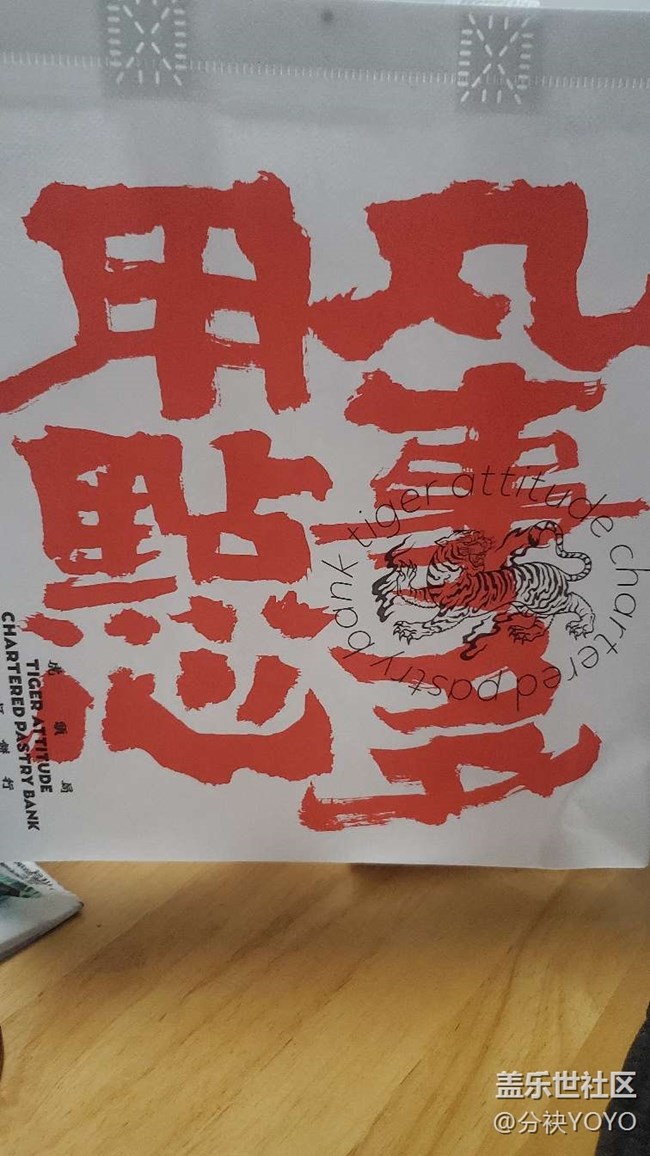 凡事
用點心
tiger attitude chartered pastry bank
虎頭局
餅行
TIGER ATTITUDE
CHARTERED PASTRY BANK
盖乐世社区
@分袂YOYO